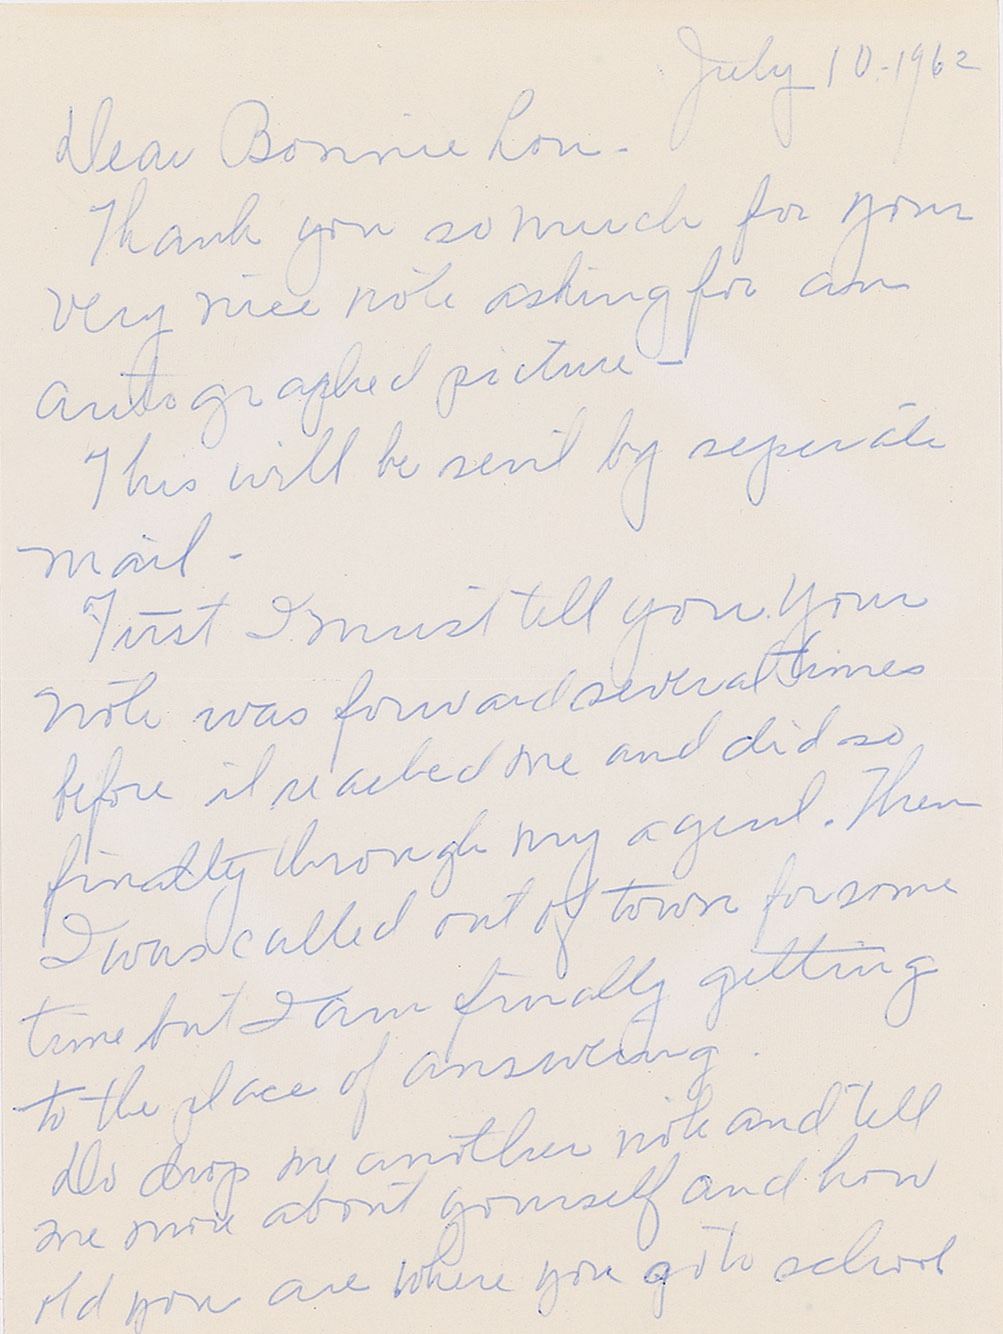 July 10-1962
Dear Bonnie Lou-
Thank you so much for your
very nice note asking for an
autographed picture-
This will be sent by seperate
mail-
First I must tell you. Your
note was forward several times
before it reached me and did so
finally through my agent. Then
I was called out of town for some
time but I am finally getting
to the place of answering.
Do drop me another note and tell
me more about yourself and how
old you are where you go to school